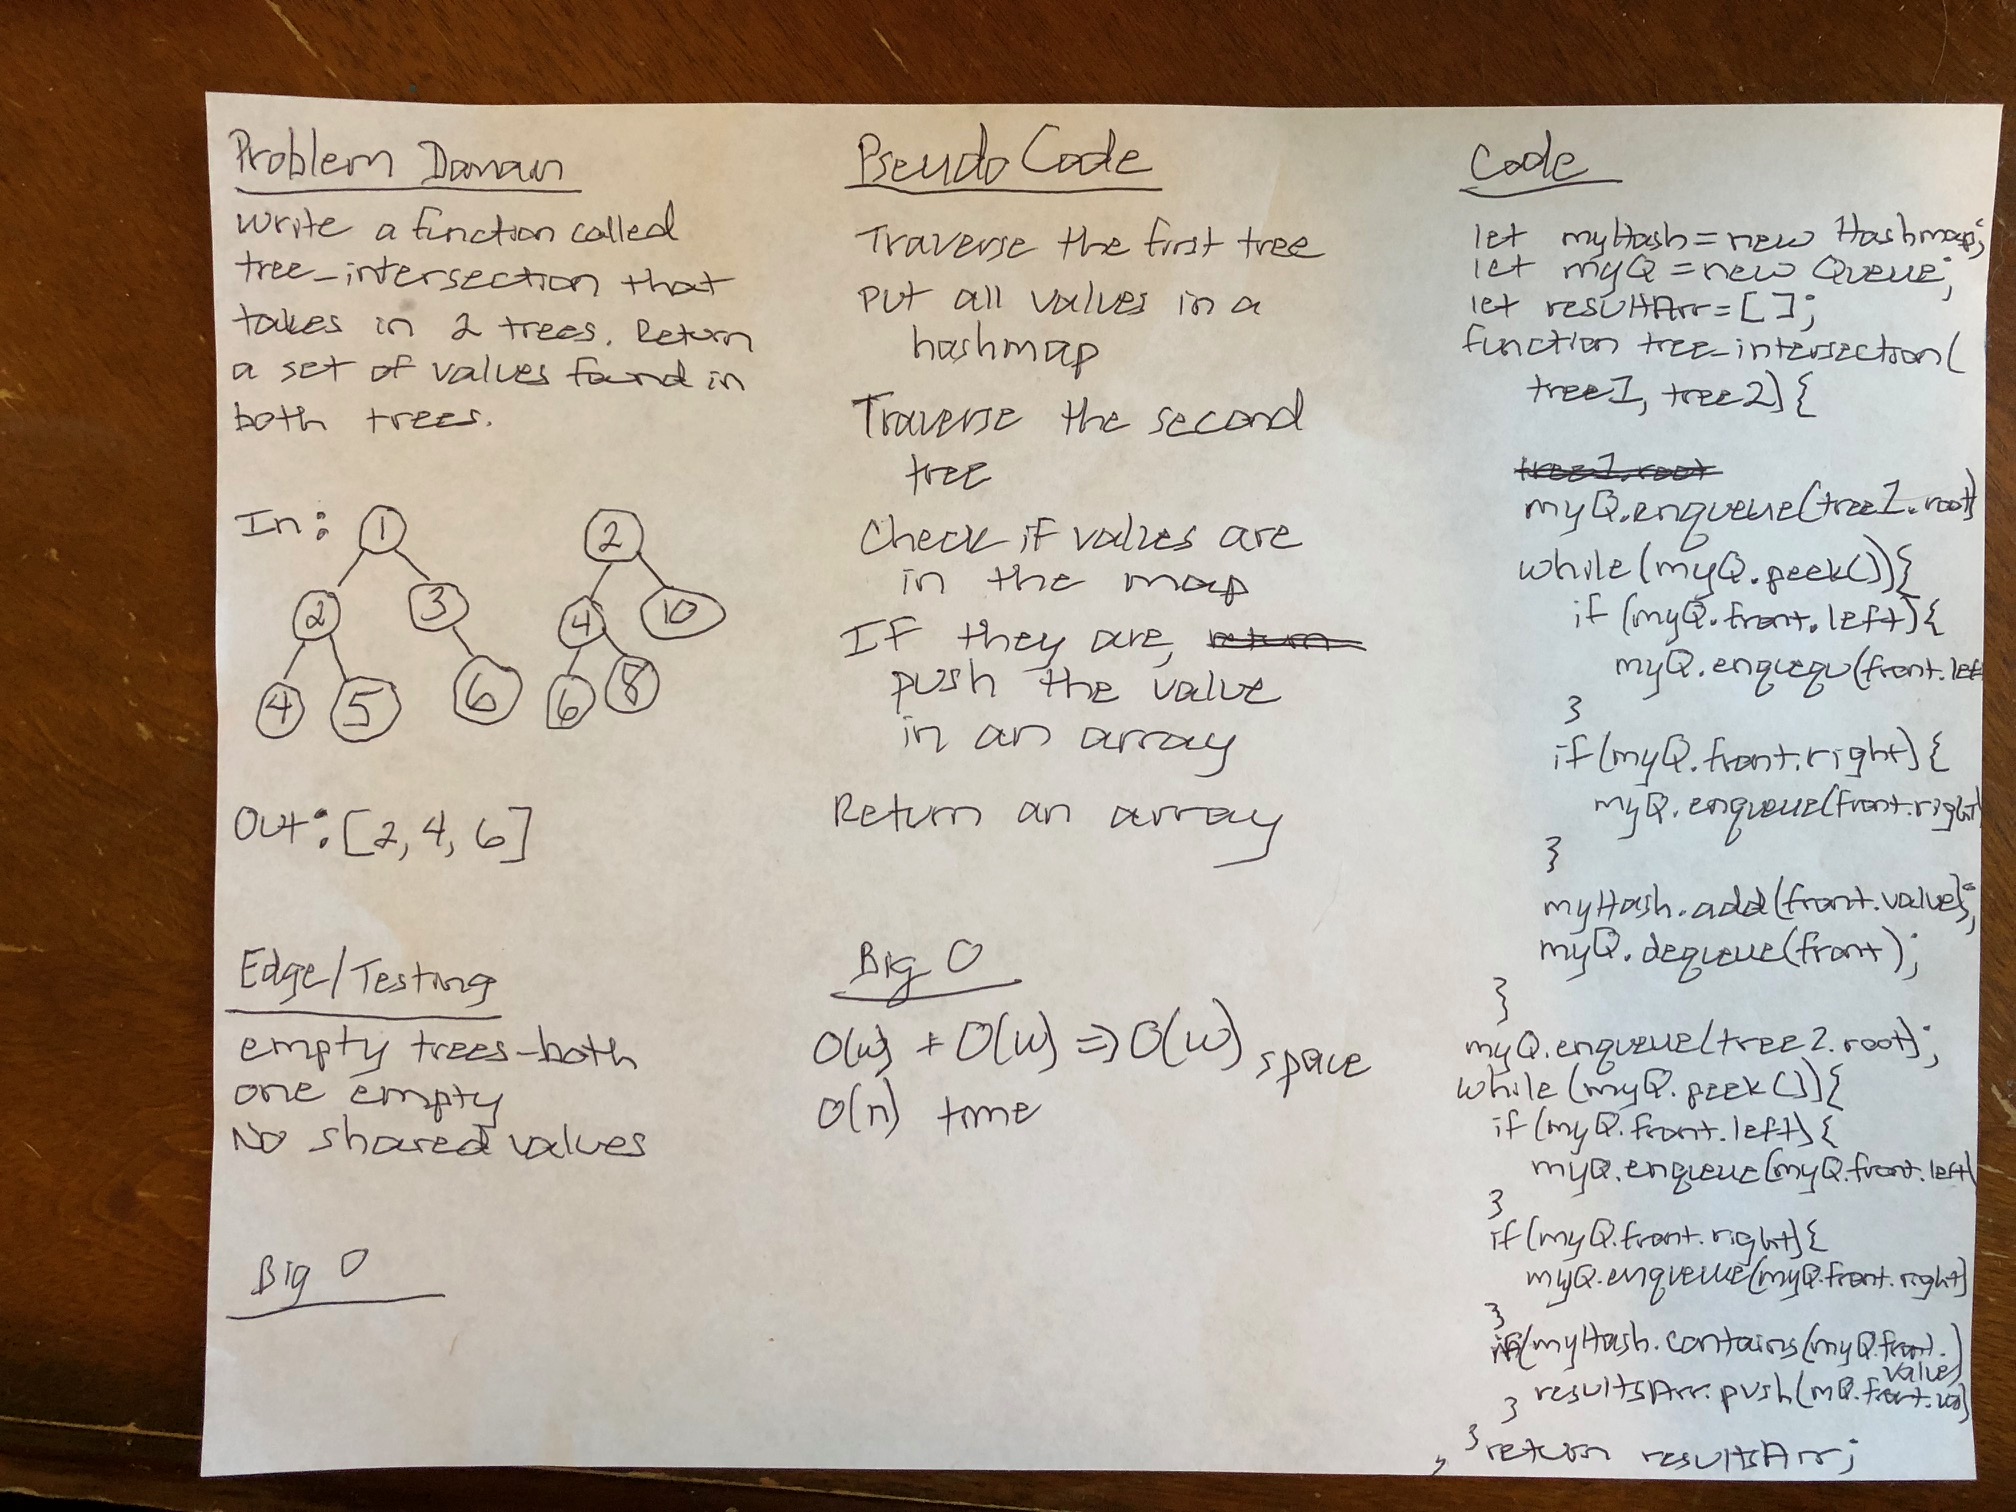 Problem Domain
Write a function called
tree_intersection that
takes in 2 trees. Return
a set of values found in
both trees.
In:
1
2
3
4
5
6
2
4
10
6
8
Out: [2,4,6]
Edge/Testing
empty trees-both
one empty
No shared values
Big O
Pseudo Code
Traverse the first tree
Put all values in a
hashmap
Traverse the second
tree
Check if values are
in the map
If they are, return
push the value
in an array
Return an array
Big O
O(w) + O(w) => O(w) space
O(n) time
Code
let myHash = new Hashmap;
let myQ = new Queue;
let resultArr = [];
function tree_intersection(
tree1, tree2){
tree1.root
myQ.enqueue(tree1.root)
while(myQ.peek()){
if(myQ.front.left){
myQ.enqueue(front.left
}
if(myQ.front.right){
myQ.enqueue(front.right)
}
myHash.add(front.value);
myQ.dequeue(front);
}
myQ.enqueue(tree2.root);
while(myQ.peek()){
if(myQ.front.left){
myQ.enqueue(myQ.front.left)
}
if(myQ.front.right){
myQ.enqueue(myQ.front.right)
}
if(myHash.contains(myQ.front.
value)
resultsArr.push(mQ.front.val)
}
}
return resultArr;